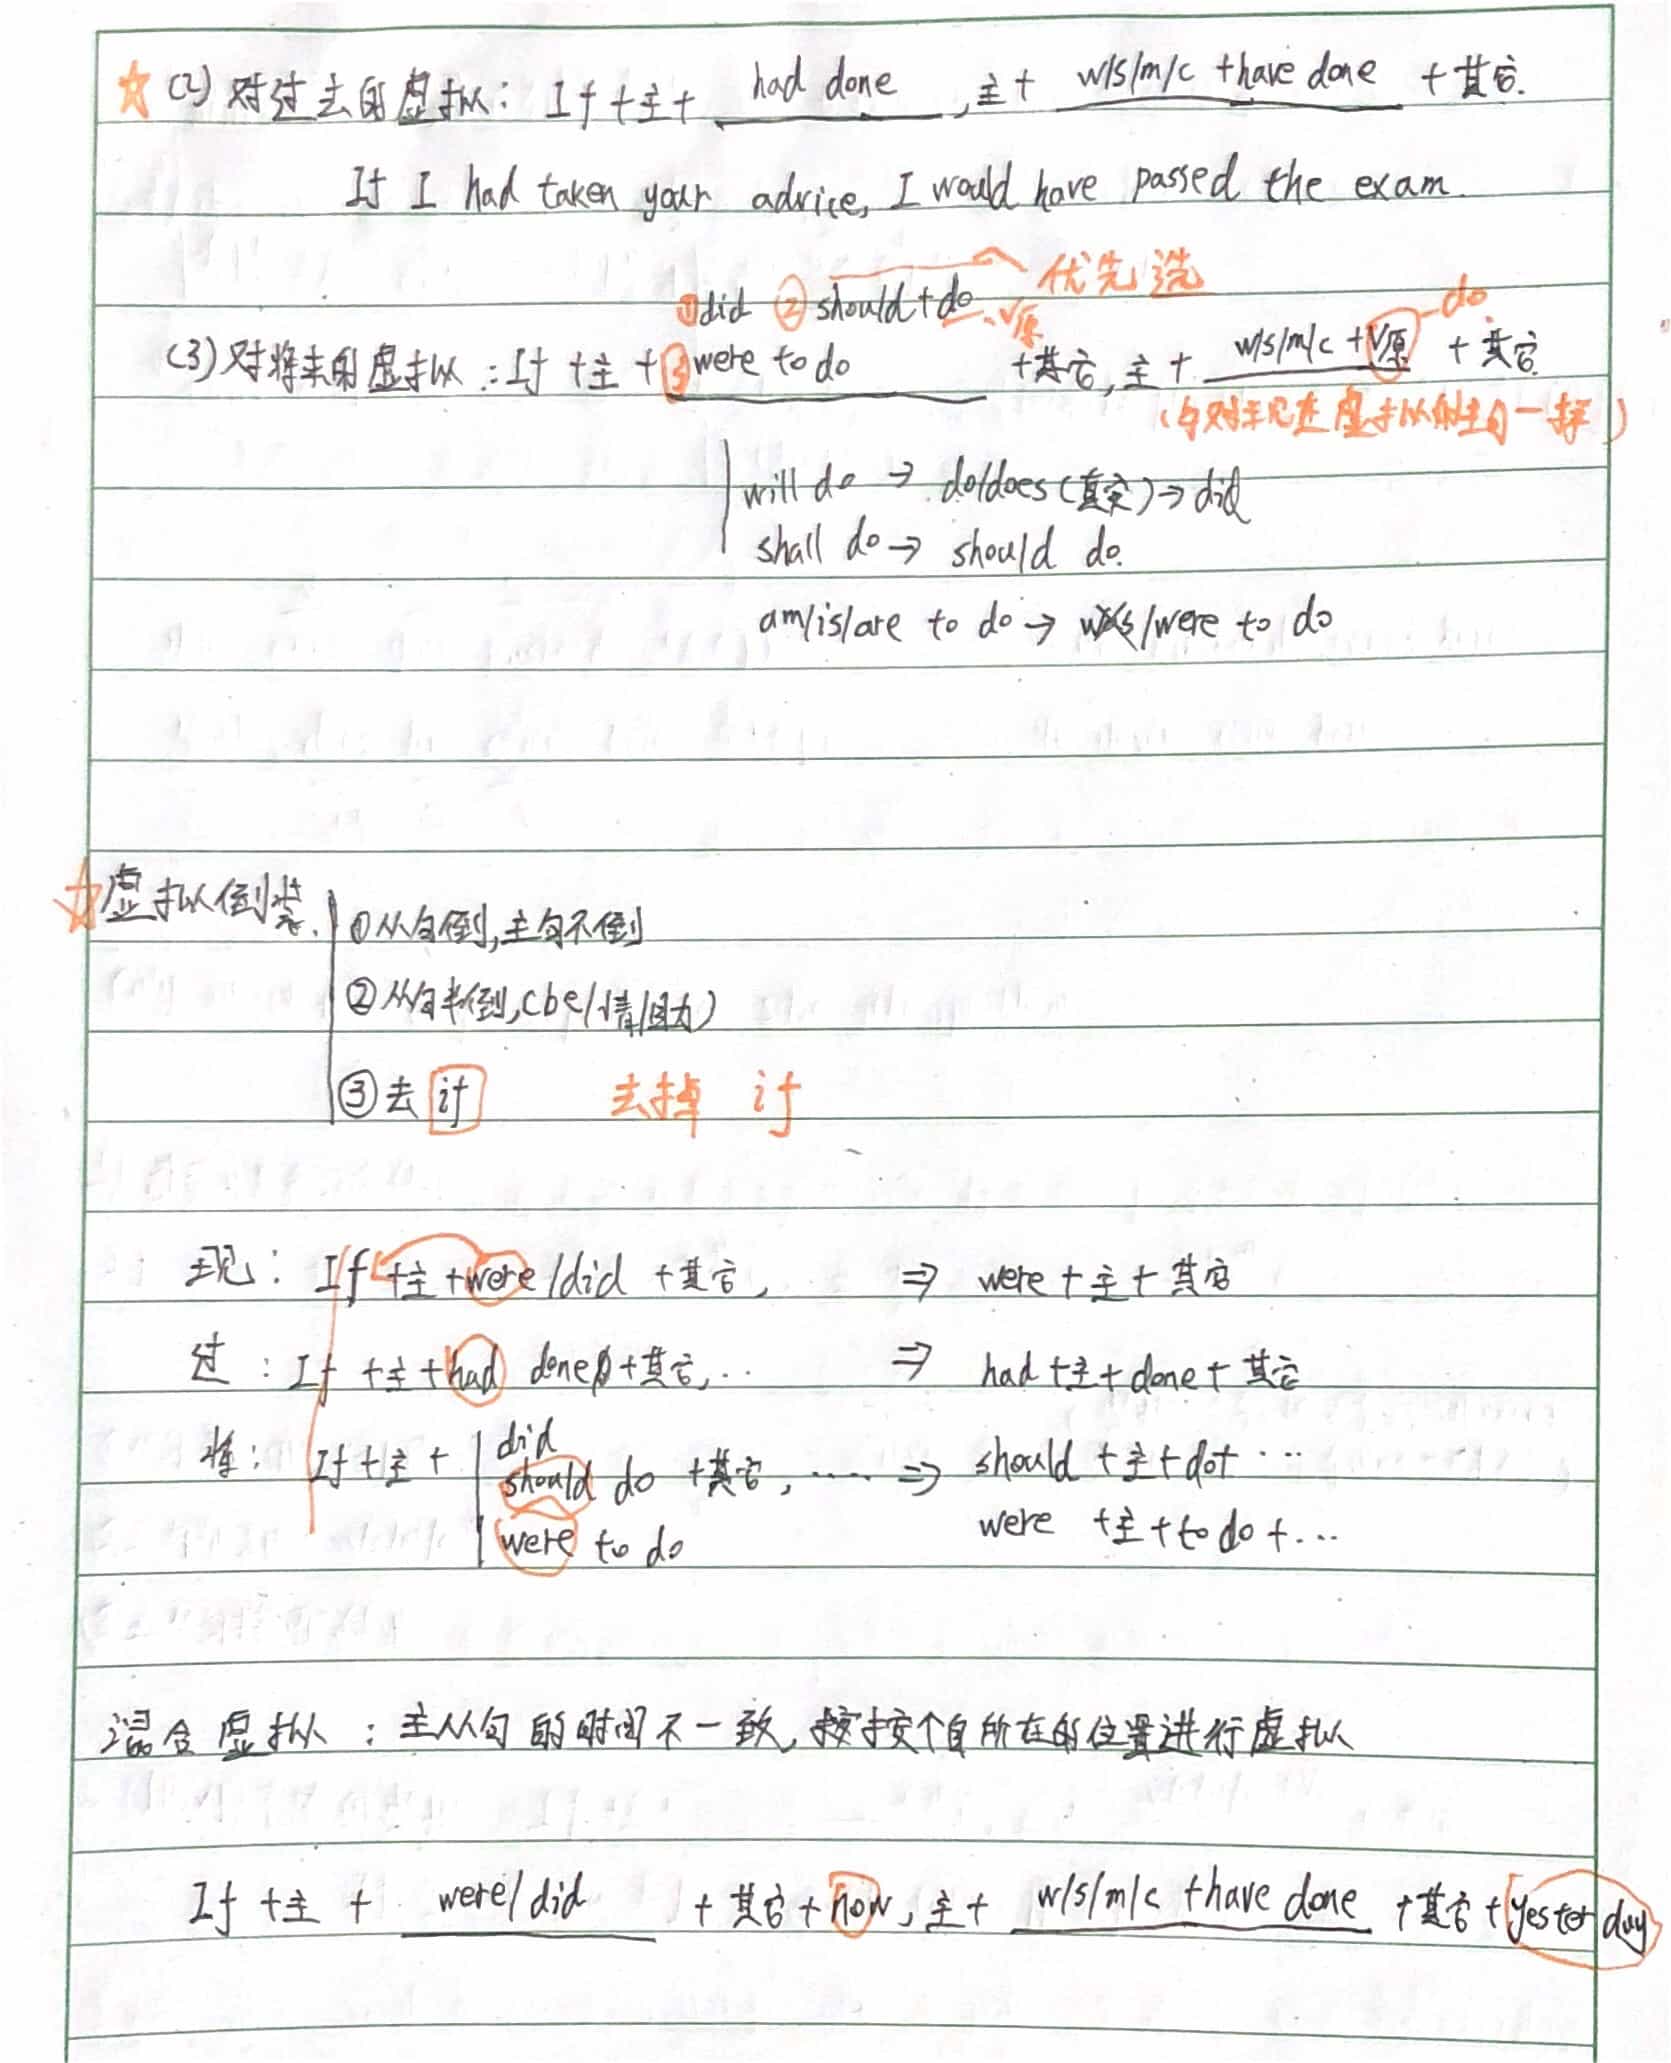 ☆ (2) 对过去的虚拟: If+主+ had done ,主+ w/s/m/c +have done +其它.
If I had taken your advice, I would have passed the exam.
①did ②should+do 优先选
V原
(3)对将来的虚拟:If+主+③were to do +其它,主+ w/s/m/c+V原 +其它. do
(与对现在虚拟的主句一样)
will do → do/does(真实)→did
shall do → should do.
am/is/are to do → was/were to do
☆虚拟倒装.
①从句倒,主句不倒
②从句半倒,(be/情/助)
③去 if 去掉 if
现: If+主+were/did +其它, ⇒ were+主+其它
过: If+主+had done+其它,.. ⇒ had+主+done+其它
将: If+主+ did
should do +其它, ...... ⇒ should+主+do+ ...
were to do were +主+to do+...
混合虚拟:主从句的时间不一致,按按个自所在的位置进行虚拟
If+主 + were/did +其它+now,主+ w/s/m/c +have done +其它+yesterday